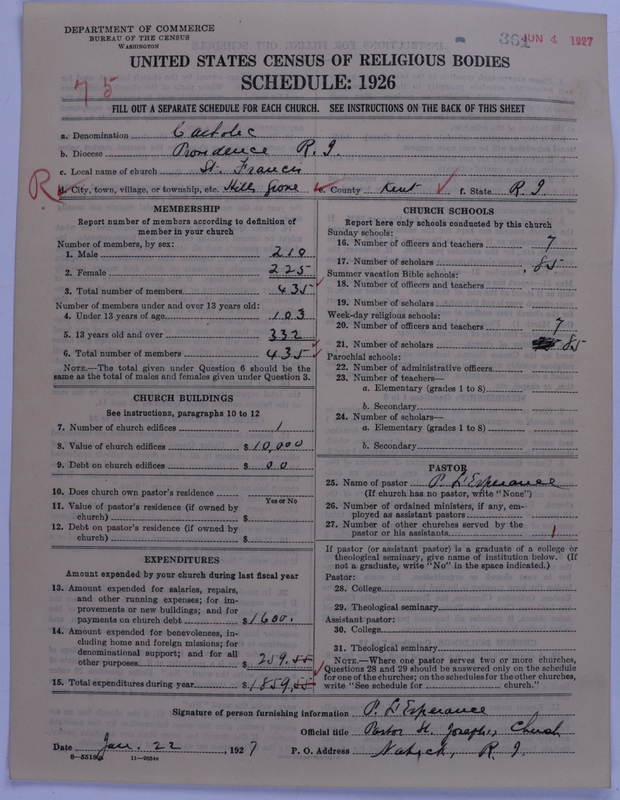 DEPARTMENT OF COMMERCE
BUREAU OF THE CENSUS
WASHINGTON
361 JUN 4 1927
UNITED STATES CENSUS OF RELIGIOUS BODIES
SCHEDULE: 1926
75
FILL OUT A SEPARATE SCHEDULE FOR EACH CHURCH. SEE INSTRUCTIONS ON THE BACK OF THIS SHEET
a. Denomination Catholic
b. Diocese Providence R. I.
c. Local name of church St. Francis
R d. City, town, village, or township, etc. Hills Grove e. County Kent f. State R I
MEMBERSHIP
Report number of members according to definition of
member in your church
Number of members, by sex:
1. Male 210
2. Female 225
3. Total number of members 435
Number of members under and over 13 years old:
4. Under 13 years of age 103
5. 13 years old and over 332
6. Total number of members 435
NOTE.—The total given under Question 6 should be the
same as the total of males and females given under Question 3.
CHURCH BUILDINGS
See instructions, paragraphs 10 to 12
7. Number of church edifices 1
8. Value of church edifices $ 10,000
9. Debt on church edifices $ 00
10. Does church own pastor's residence
Yes or No
11. Value of pastor's residence (if owned by
church) $
12. Debt on pastor's residence (if owned by
church) $
EXPENDITURES
Amount expended by your church during last fiscal year
13. Amount expended for salaries, repairs,
and other running expenses; for im-
provements or new buildings; and for
payments on church debt $ 1600.
14. Amount expended for benevolences, in-
cluding home and foreign missions; for
denominational support; and for all
other purposes $ 259.55
15. Total expenditures during year $ 1859.55
CHURCH SCHOOLS
Report here only schools conducted by this church
Sunday schools:
16. Number of officers and teachers 7
17. Number of scholars 85
Summer vacation Bible schools:
18. Number of officers and teachers
19. Number of scholars
Week-day religious schools:
20. Number of officers and teachers 7
21. Number of scholars 85
Parochial schools:
22. Number of administrative officers
23. Number of teachers—
a. Elementary (grades 1 to 8)
b. Secondary
24. Number of scholars—
a. Elementary (grades 1 to 8)
b. Secondary
PASTOR
25. Name of pastor P. L'Esperance
(If church has no pastor, write "None")
26. Number of ordained ministers, if any, em-
ployed as assistant pastors
27. Number of other churches served by the
pastor or his assistants 1
If pastor (or assistant pastor) is a graduate of a college or
theological seminary, give name of institution below. (If
not a graduate, write "No" in the space indicated.)
Pastor:
28. College
29. Theological seminary
Assistant pastor:
30. College
31. Theological seminary
NOTE.—Where one pastor serves two or more churches,
Questions 28 and 29 should be answered only on the schedule
for one of the churches; on the schedules for the other churches,
write "See schedule for church."
Signature of person furnishing information P. L'Esperance
Official title Pastor St. Josephs Church
Date Jan. 22, 1927 P. O. Address Natick, R. I.
8—5518a 11—9054e